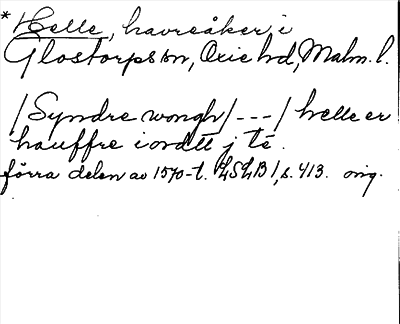 *Helle, havreåker i
Glostorps sn, Oxie hd, Malm. l.
/Syndre wongh/ --- / helle er
hauffre i ordtt j te.
förra delen av 1570-t. LSLB 1, s. 413. orig.